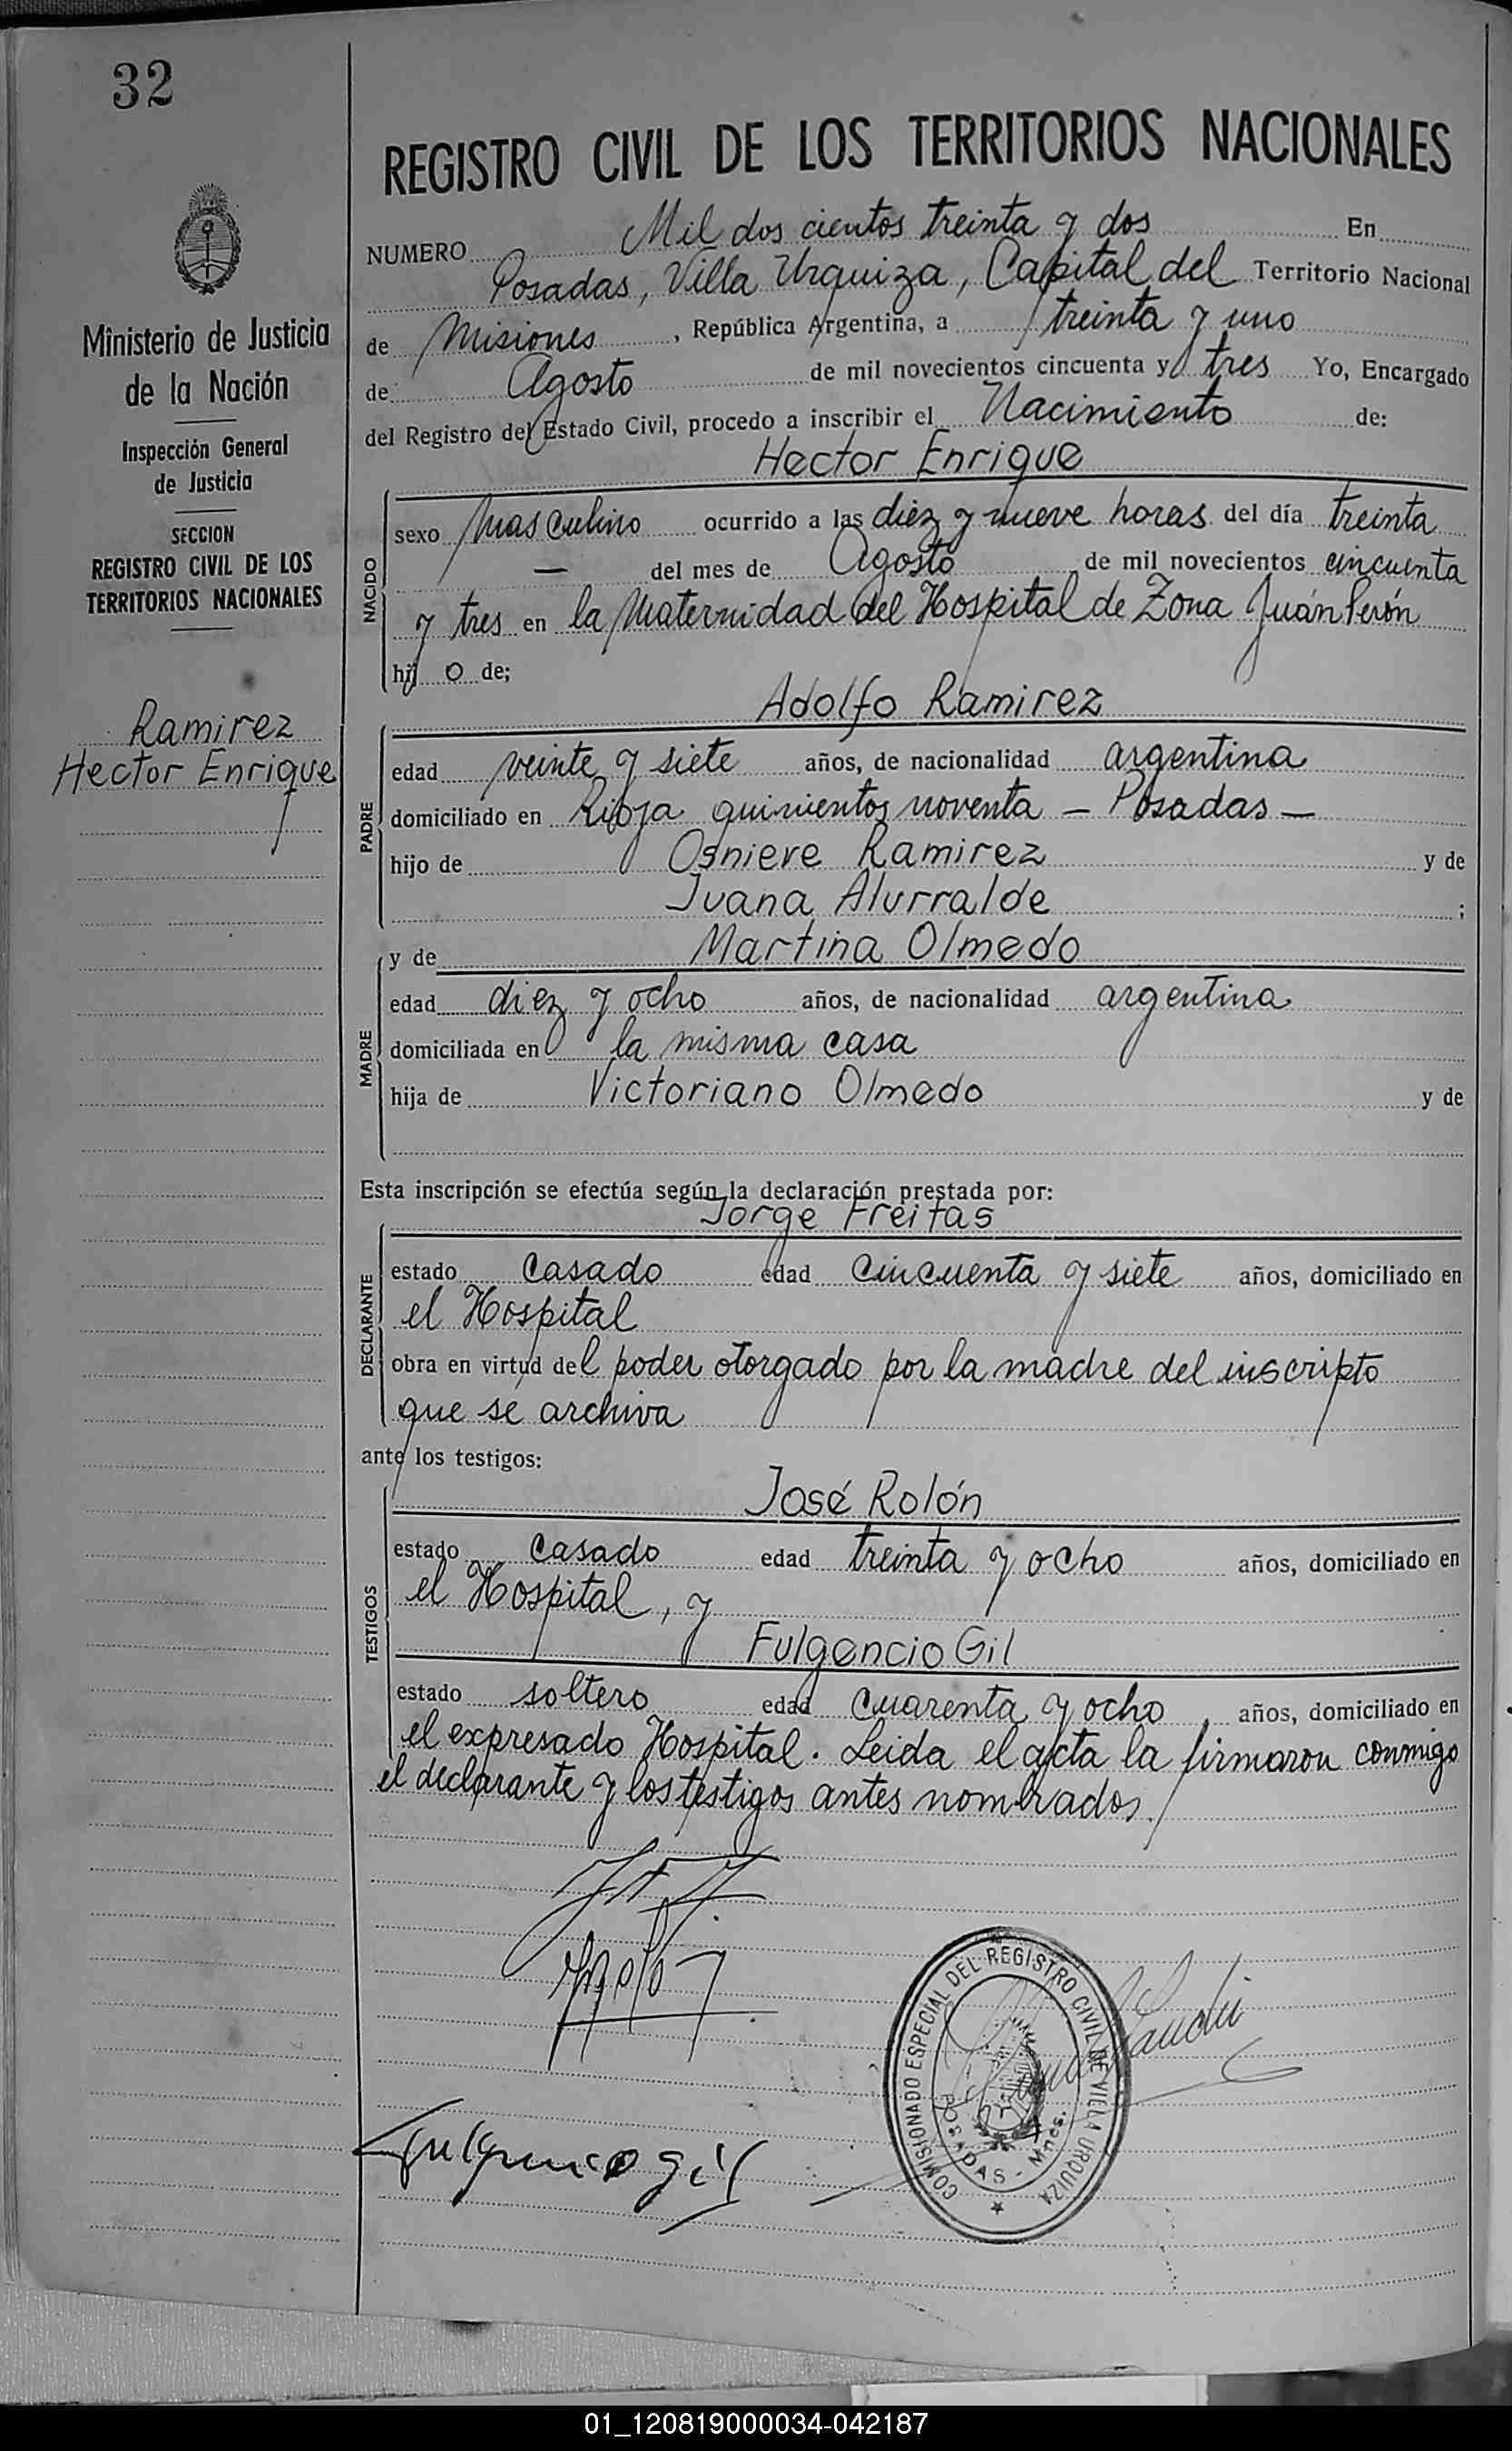 32
REGISTRO CIVIL DE LOS TERRITORIOS NACIONALES
Ministerio de Justicia
de la Nación
Inspección General
de Justicia
SECCION
REGISTRO CIVIL DE LOS
TERRITORIOS NACIONALES
Ramirez
Hector Enrique
NUMERO Mil dos cientos treinta y dos En
Posadas, Villa Urquiza, Capital del Territorio Nacional
de Misiones, República Argentina, a treinta y uno
de Agosto de mil novecientos cincuenta y tres Yo, Encargado
del Registro del Estado Civil, procedo a inscribir el Nacimiento de:
Hector Enrique
NACIDO
sexo masculino ocurrido a las diez y nueve horas del día treinta
— del mes de Agosto de mil novecientos cincuenta
y tres en la Maternidad del Hospital de Zona Juán Perón
hijo de;
Adolfo Ramirez
PADRE
edad veinte y siete años, de nacionalidad argentina
domiciliado en Rioja quinientos noventa — Posadas —
hijo de Osniere Ramirez y de
Juana Alurralde ;
y de Martina Olmedo
MADRE
edad diez y ocho años, de nacionalidad argentina
domiciliada en la misma casa
hija de Victoriano Olmedo y de
Esta inscripción se efectúa según la declaración prestada por:
Jorge Freitas
DECLARANTE
estado casado edad cincuenta y siete años, domiciliado en
el Hospital
obra en virtud del poder otorgado por la madre del inscripto
que se archiva
ante los testigos:
José Rolón
TESTIGOS
estado casado edad treinta y ocho años, domiciliado en
el Hospital, y
Fulgencio Gil
estado soltero edad cuarenta y ocho años, domiciliado en
el expresado Hospital. Leida el acta la firmaron conmigo
el declarante y los testigos antes nombrados.
COMISIONADO ESPECIAL DEL REGISTRO CIVIL DE VILLA URQUIZA
POSADAS - Mnes.
Fulgencio gil
01_120819000034-042187